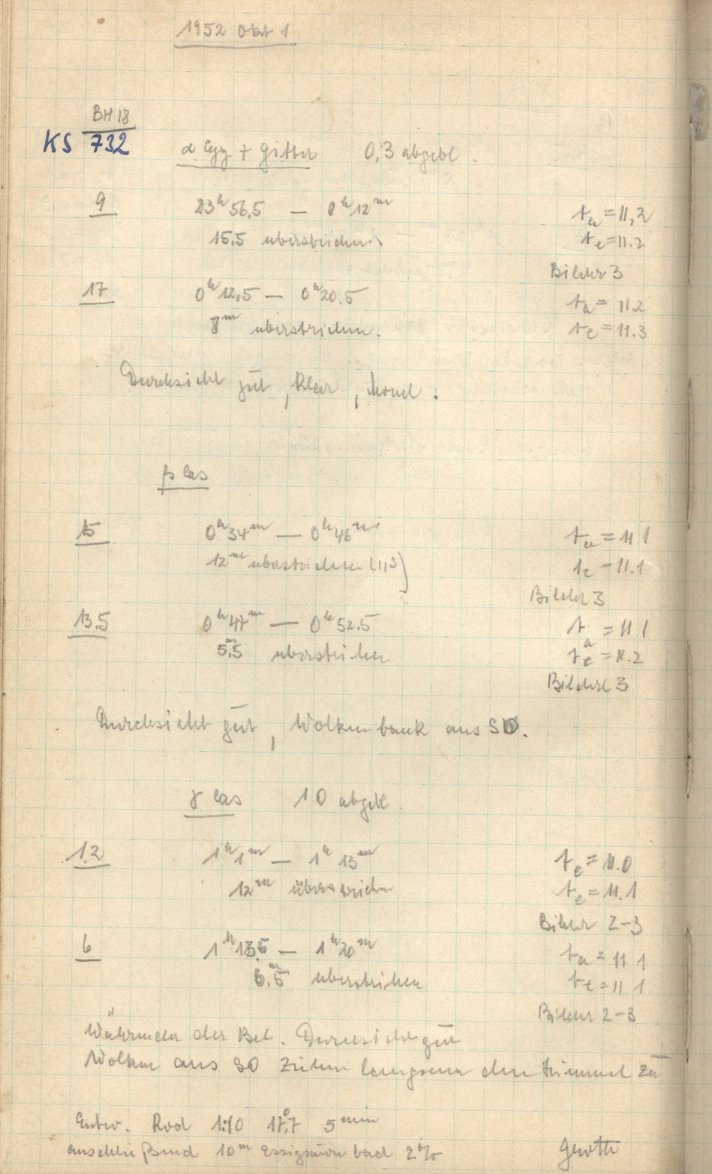 1952 Okt 1
BH 18
KS 732
α Cyg + Gitter 0,3 abgebl.
9 23ʰ56,5 — 0ʰ12ᵐ tₐ = 11,2
15,5 überstrichen tₑ = 11.2
Bilder 3
17 0ʰ12,5 — 0ʰ20,5 tₐ = 11.2
8ᵐ überstrichen. tₑ = 11.3
Durchsicht gut, klar, Mond.
β Cas
15 0ʰ34ᵐ — 0ʰ46ᵐ tₐ = 11.1
12ᵐ überstrichen tₑ = 11.1
Bilder 3
13.5 0ʰ47ᵐ — 0ʰ52.5 tₐ = 11.1
5,5ᵐ überstrichen tₑ = 11.2
Bilder 3
Durchsicht gut, Wolkenbank aus SO.
γ Cas 1.0 abgebl.
12 1ʰ1ᵐ — 1ʰ13ᵐ tₑ = 11.0
12ᵐ überstrichen tₑ = 11.1
Bilder 2-3
6 1ʰ13,5 — 1ʰ20ᵐ tₐ = 11.1
6,5ᵐ überstrichen tₑ = 11.1
Bilder 2-3
Während der Bel. Durchsicht gut
Wolken aus SO ziehen langsam den Himmel zu
Entw. Rod 1:10 17,7° 5 min
anschließend 10ᵐ Essigsäure bad 2%